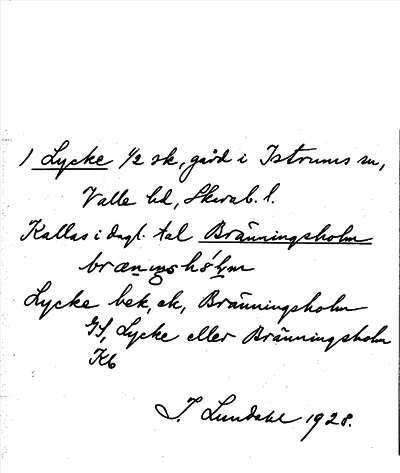 1 Lycke 1/2 sk, gård i Istrums sn,
Valle hd, Skarab. l.
Kallas i dagl. tal Bränningsholm
brænıŋshɷ́lm
Lycke bek, ek, Bränningsholm
GS, Lycke eller Bränningsholm
Kb
I. Lundahl 1928.